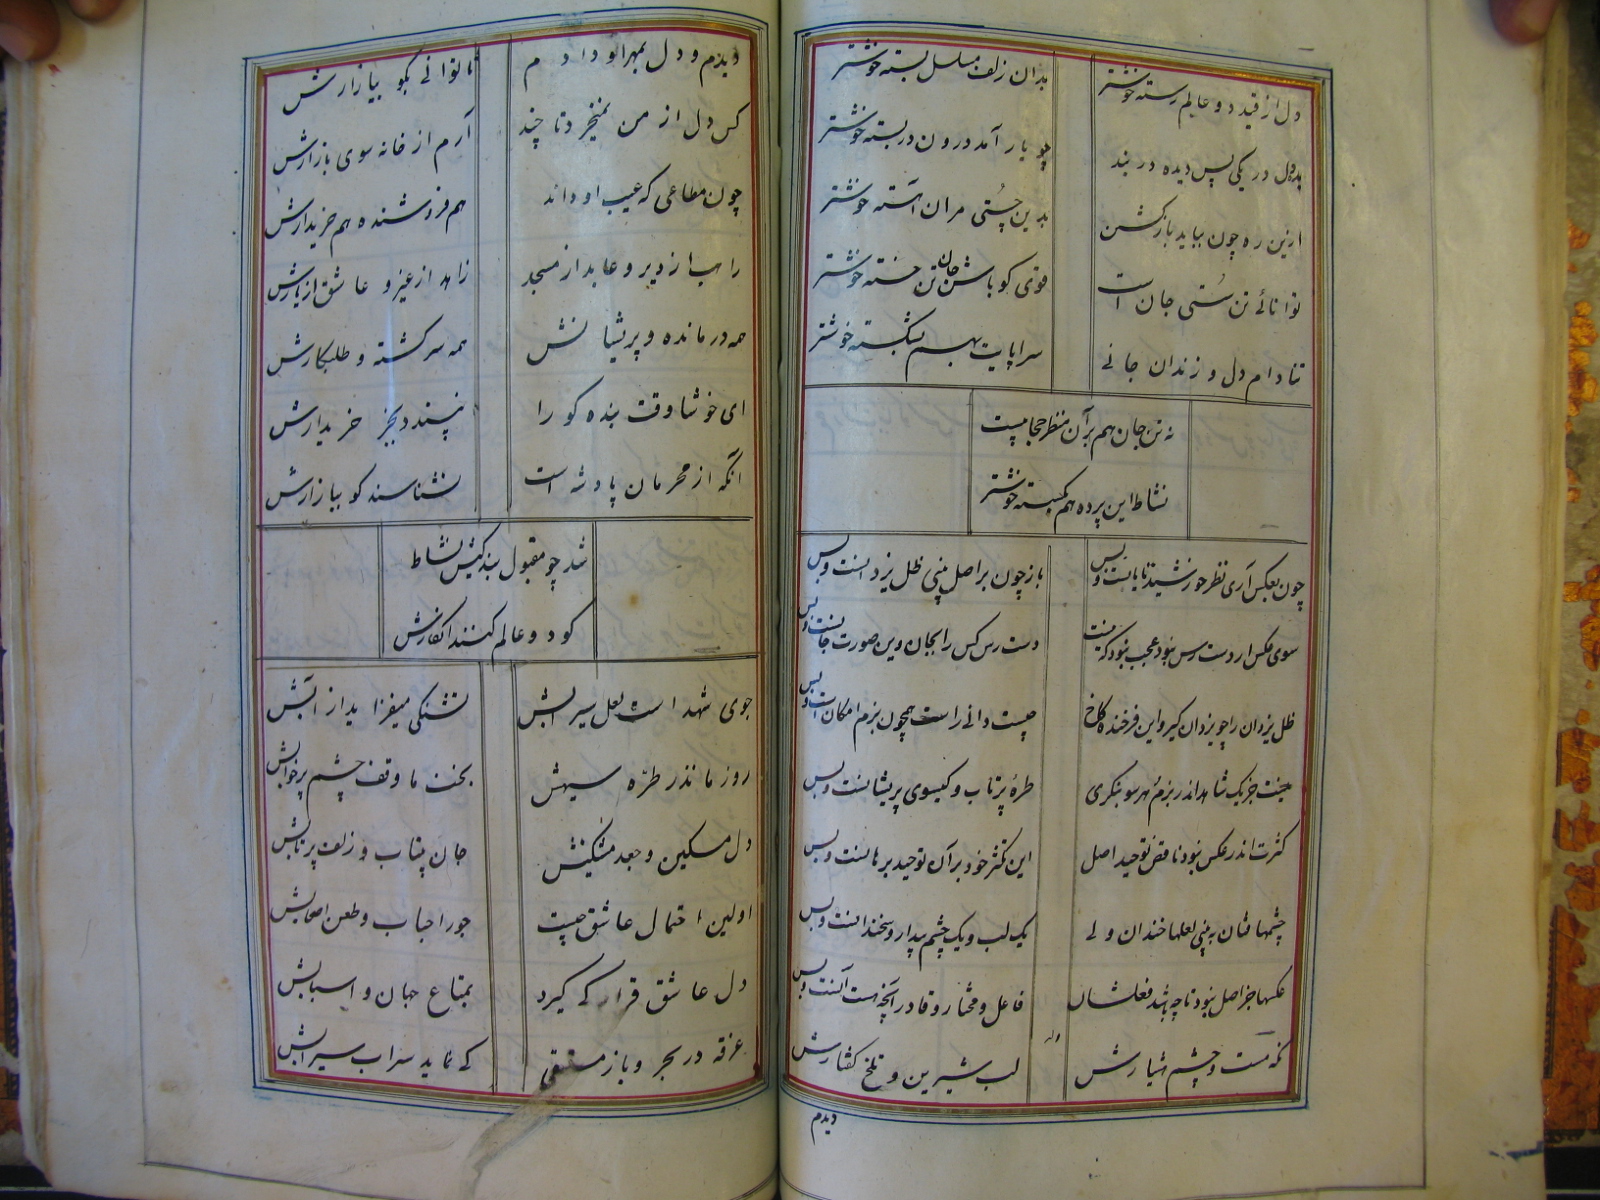 دل از قید دو عالم رسته خوشتر
بدان زلف مسلسل بسته خوشتر
دل در یکی پس دیده در بند
چو یار آمد درون در بسته خوشتر
ازین ره چون بباید بازگشتن
بدین چستی مران آهسته خوشتر
توانائے تن سستی جان است
قوی گو باش جان تن خسته خوشتر
تنا دام دل و زندان جانے
سراپایت بهم بشکسته خوشتر
نه تن جان هم بر آن منظر حجابیست
نشاط این پرده هم بگسسته خوشتر
چون بعکس آری نظر خورشید تابانست و بس
باز چون بر اصل بینی ظل یزدانست و بس
سوی عکس ار دست رس نبود عجب نبود که نیست
دست رس کس را بجان وین صورت جانست و بس
ظل یزدان را چو یزدان گیر و این فرخنده کاخ
چیست دانی راست همچون بزم امکان است و بس
نیست جز یک شاهد اندر بزم هر سو بنگری
طرهٔ پر تاب و گیسوی پریشانست و بس
کثرت اندر عکس نبود ناقض توحید اصل
این تکثر خود بر آن توحید برهانست و بس
چشمها فتان ببینی لعلها خندان ولے
یک لب و یک چشم بیدار و سخندانست و بس
عکسها جز اصل نبود تا چه باشد فعلشان
فاعل و مختار و قادر آنچه هست آنست و بس
وله
نگه مست و چشم هشیارش
لب شیرین و تلخ گفتارش
دیدم
دیدم و دل بمهر او دادم
تا توانے بگو بیازارش
کس دل از من نمیخرد تا چند
آرم از خانه سوی بازارش
چون متاعی که عیب او داند
هم فروشنده هم خریدارش
راهب از دیر و عابد از مسجد
زاهد از غیر و عاشق از یارش
همه درمانده و پریشانش
همه سرگشته و طلبکارش
ای خوشا وقت بنده کو را
نپسندد بجز خریدارش
آنکه از محرمان پادشه است
نشناسند کو ببازارش
شد چو مقبول بندگیش نشاط
گو دو عالم کنند انکارش
جوی شهد است لعل سیرابش
تشنگی میفزاید از آبش
روز ما نذر طره سیهش
بخت ما وقف چشم پرخوابش
دل مسکین و جعد مشکینش
جان بیتاب و زلف پرتابش
اولین احتمال عاشق چیست
جور احباب و طعن اصحابش
دل عاشق قرار که گیرد
بمتاع جهان و اسبابش
غرقه در بحر و باز مستسقی
که نماید سراب سیرابش